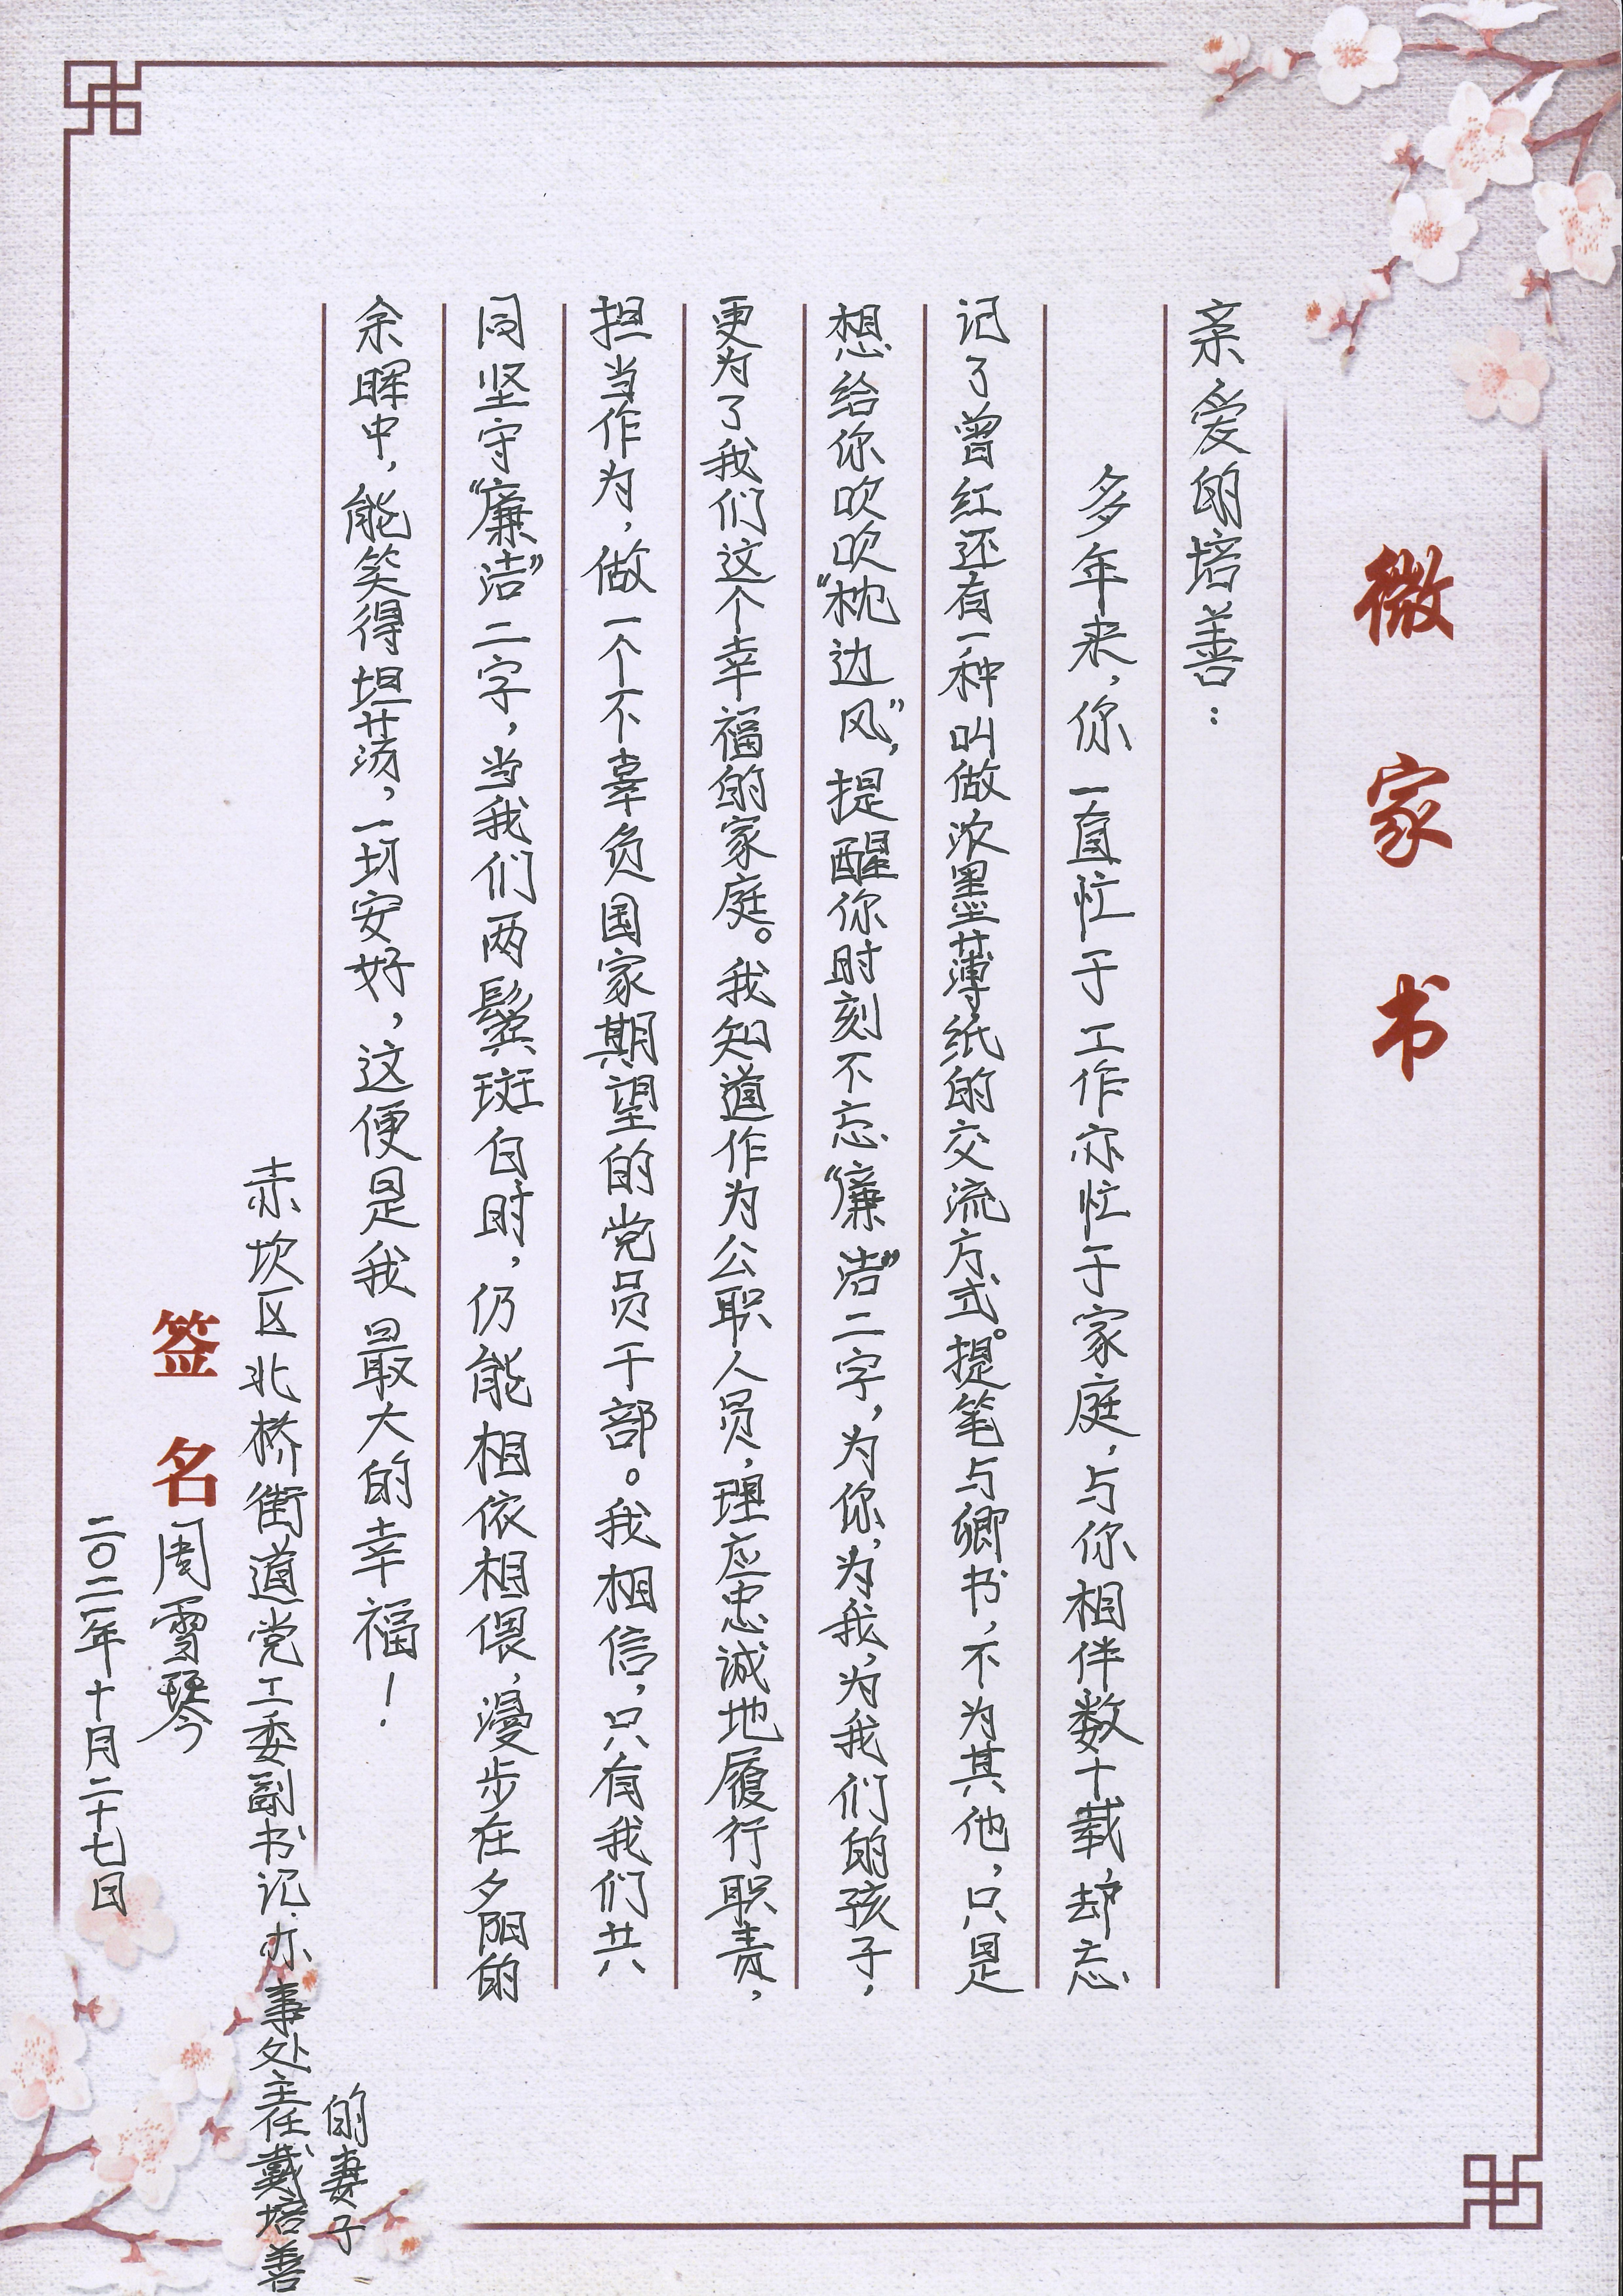 微家书
亲爱的培善：
多年来，你一直忙于工作亦忙于家庭，与你相伴数十载，却忘
记了曾经还有一种叫做浓墨薄纸的交流方式。提笔与卿书，不为其他，只是
想给你吹吹“枕边风”，提醒你时刻不忘“廉洁”二字，为你，为我，为我们的孩子，
更为了我们这个幸福的家庭。我知道作为公职人员，理应忠诚地履行职责，
担当作为，做一个不辜负国家期望的党员干部。我相信，只有我们共
同坚守“廉洁”二字，当我们两鬓斑白时，仍能相依相偎，漫步在夕阳的
余晖中，能笑得坦荡，一切安好，这便是我最大的幸福！
赤坎区北桥街道党工委副书记、办事处主任戴培善
的妻子
签名 周雪琴
二〇二二年十月二十七日